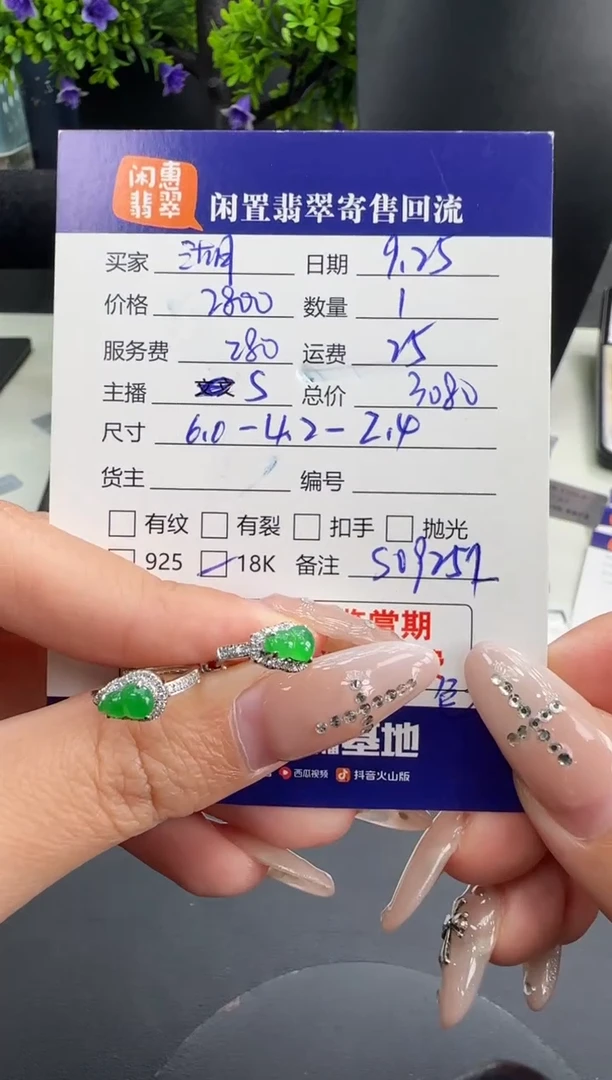 闲惠
翡翠
闲置翡翠寄售回流
买家 日期 9.25
价格 2800 数量 1
服务费 280 运费 25
主播 S 总价 3080
尺寸 6.0-4.2-2.4
货主 编号
有纹 有裂 扣手 抛光
925 18K 备注 S09257
鉴赏期
基地
西瓜视频 抖音火山版